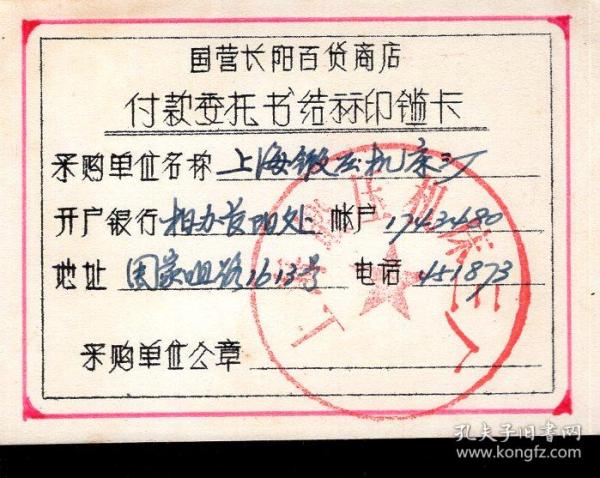 国营长阳百货商店
付款委托书结算印鉴卡
采购单位名称 上海锻压机床三厂
开户银行 相办岗阳处 帐户 1742480
地址 国家咀路1613号 电话 451873
采购单位公章
上海锻压机床三厂
孔夫子旧书网
www.kongfz.com